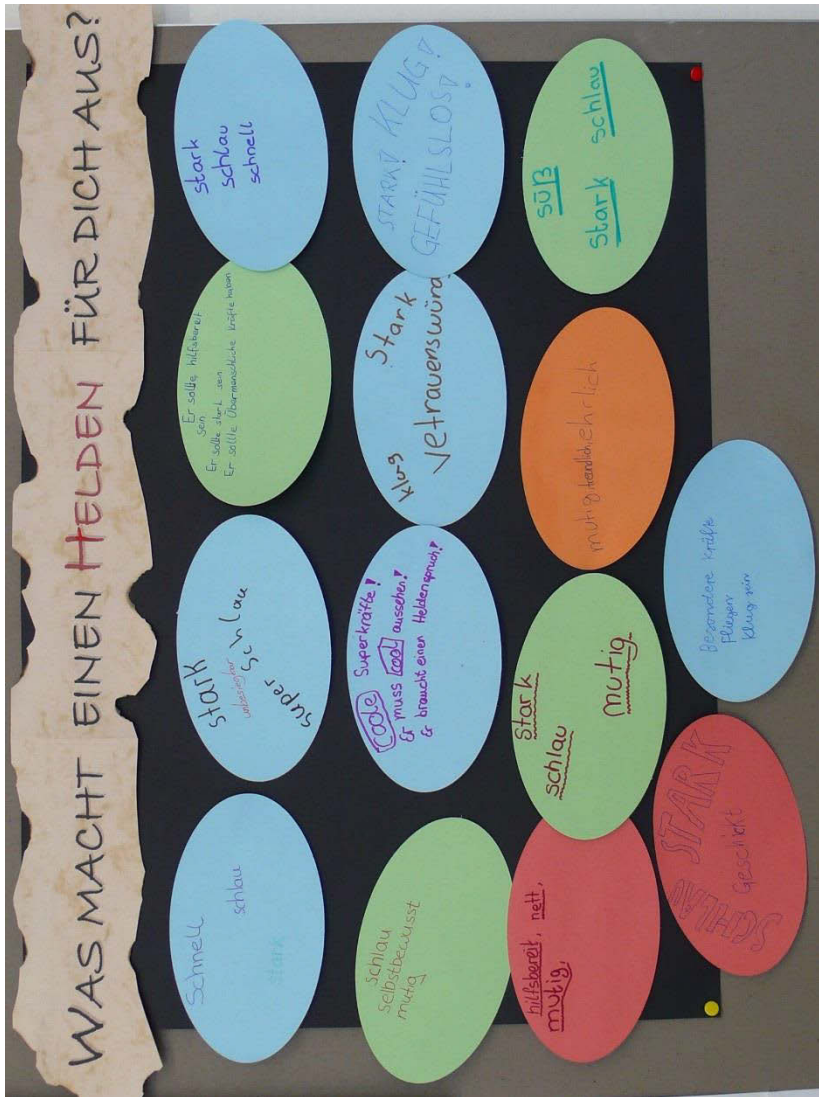 WAS MACHT EINEN HELDEN FÜR DICH AUS?
Schnell
schlau
stark
stark
unbesiegbar
super schlau
Er sollte hilfsbereit
sein
Er sollte stark sein
Er sollte Übermenschliche Kräfte haben
stark
schlau
schnell
schlau
selbstbewusst
mutig
coole Superkräfte!
Er muss cool aussehen!
Er braucht einen Heldenspruch!
klug Stark
vetrauenswürd
STARK! KLUG!
GEFÜHLSLOS!
hilfsbereit, nett,
mutig.
stark
schlau
mutig.
mutig freundlich ehrlich
süß
stark schlau
SCHLAU STARK
Geschickt
Besondere Kräfte
Fliegen
Klug sein